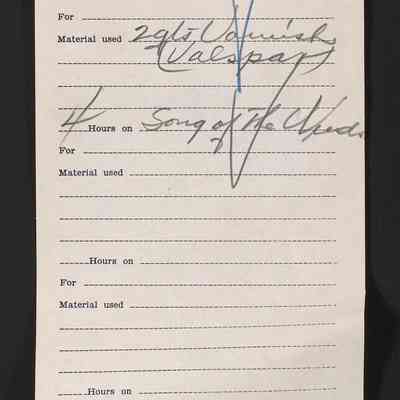 For
Material used 2 qts Varnish
(Valspar)
4 Hours on Song of the Weeds
For
Material used
Hours on
For
Material used
Hours on